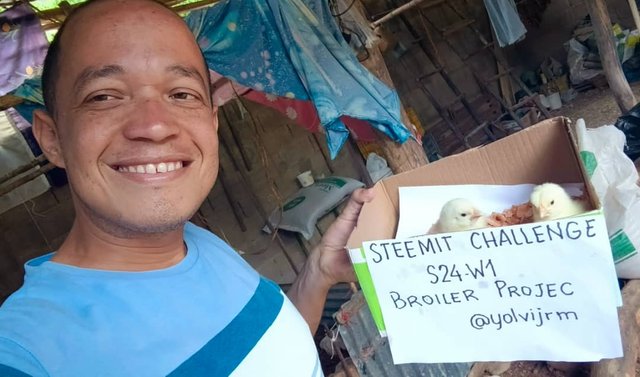 STEEMIT CHALLENGE
S24.W1
BROILER PROJEC
@yolvijrm